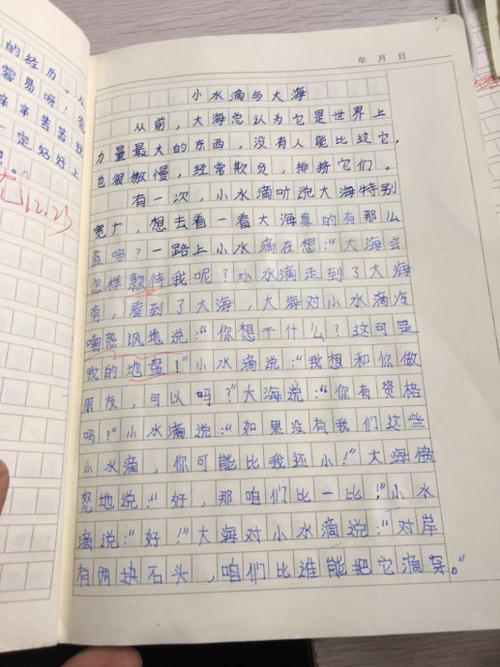 的经历，
容易呀！
辛辛苦苦
一定好好上
12.23
年 月 日
小水滴与大海
从前，大海总认为它是世界上
力量最大的东西，没有人能比过它，
也很傲慢，经常欺负，排挤它们。
有一次，小水滴听说大海特别
宽广，想去看一看大海真的有那么
宽吗？一路上小水滴在想：“大海会
怎样款待我呢？小水滴走到了大海
旁，看到了大海，大海对小水滴冷
嘲热讽地说：“你想干什么？这可是
我的地盘！”小水滴说：“我想和你做
朋友，可以吗？”大海说：“你有资格
吗！”小水滴说：“如果没有我们这些
小水滴，你可能比我还小！”大海
怒地说：“好，那咱们比一比！”小水
滴说：“好！”大海对小水滴说：“对岸
有两块石头，咱们比谁能把它滴穿。”